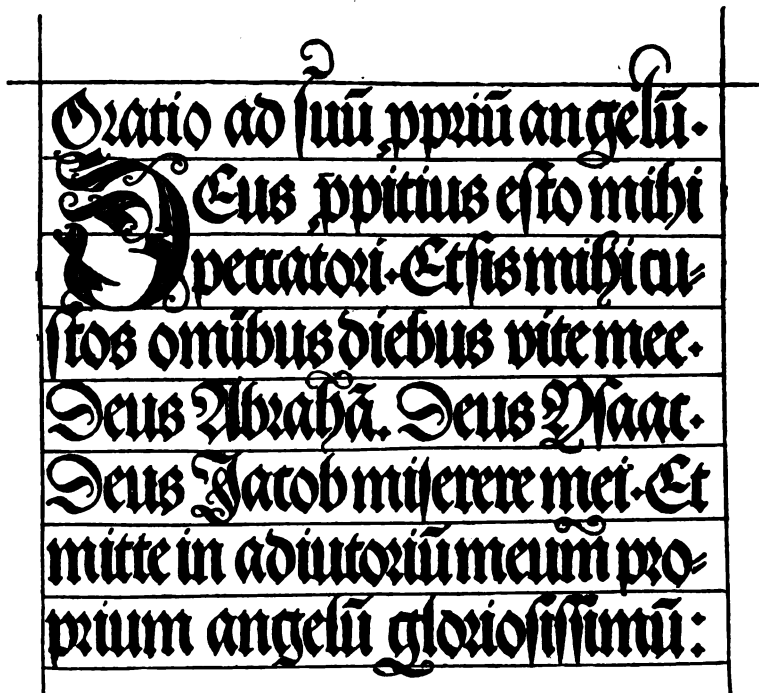 Oratio ad ſuū ꝓpriū angelū.
DEus ꝓpitius eſto mihi
peccatori. Et ſis mihi cu⸗
ſtos om̄ibus diebus vite mee.
Deus Abrahā. Deus Yſaac.
Deus Jacob miſerere mei. Et
mitte in adiutoriū meum pro⸗
prium angelū glorioſiſſimū: